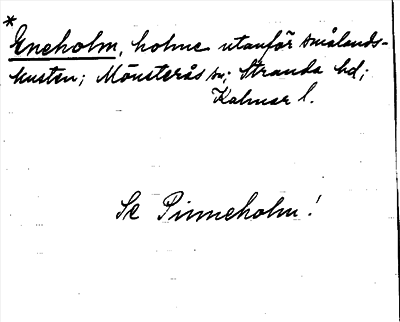 *
Eneholm, holme utanför smålands-
kusten; Mönsterås sn; Stranda hd;
Kalmar l.
Se Pinneholm!